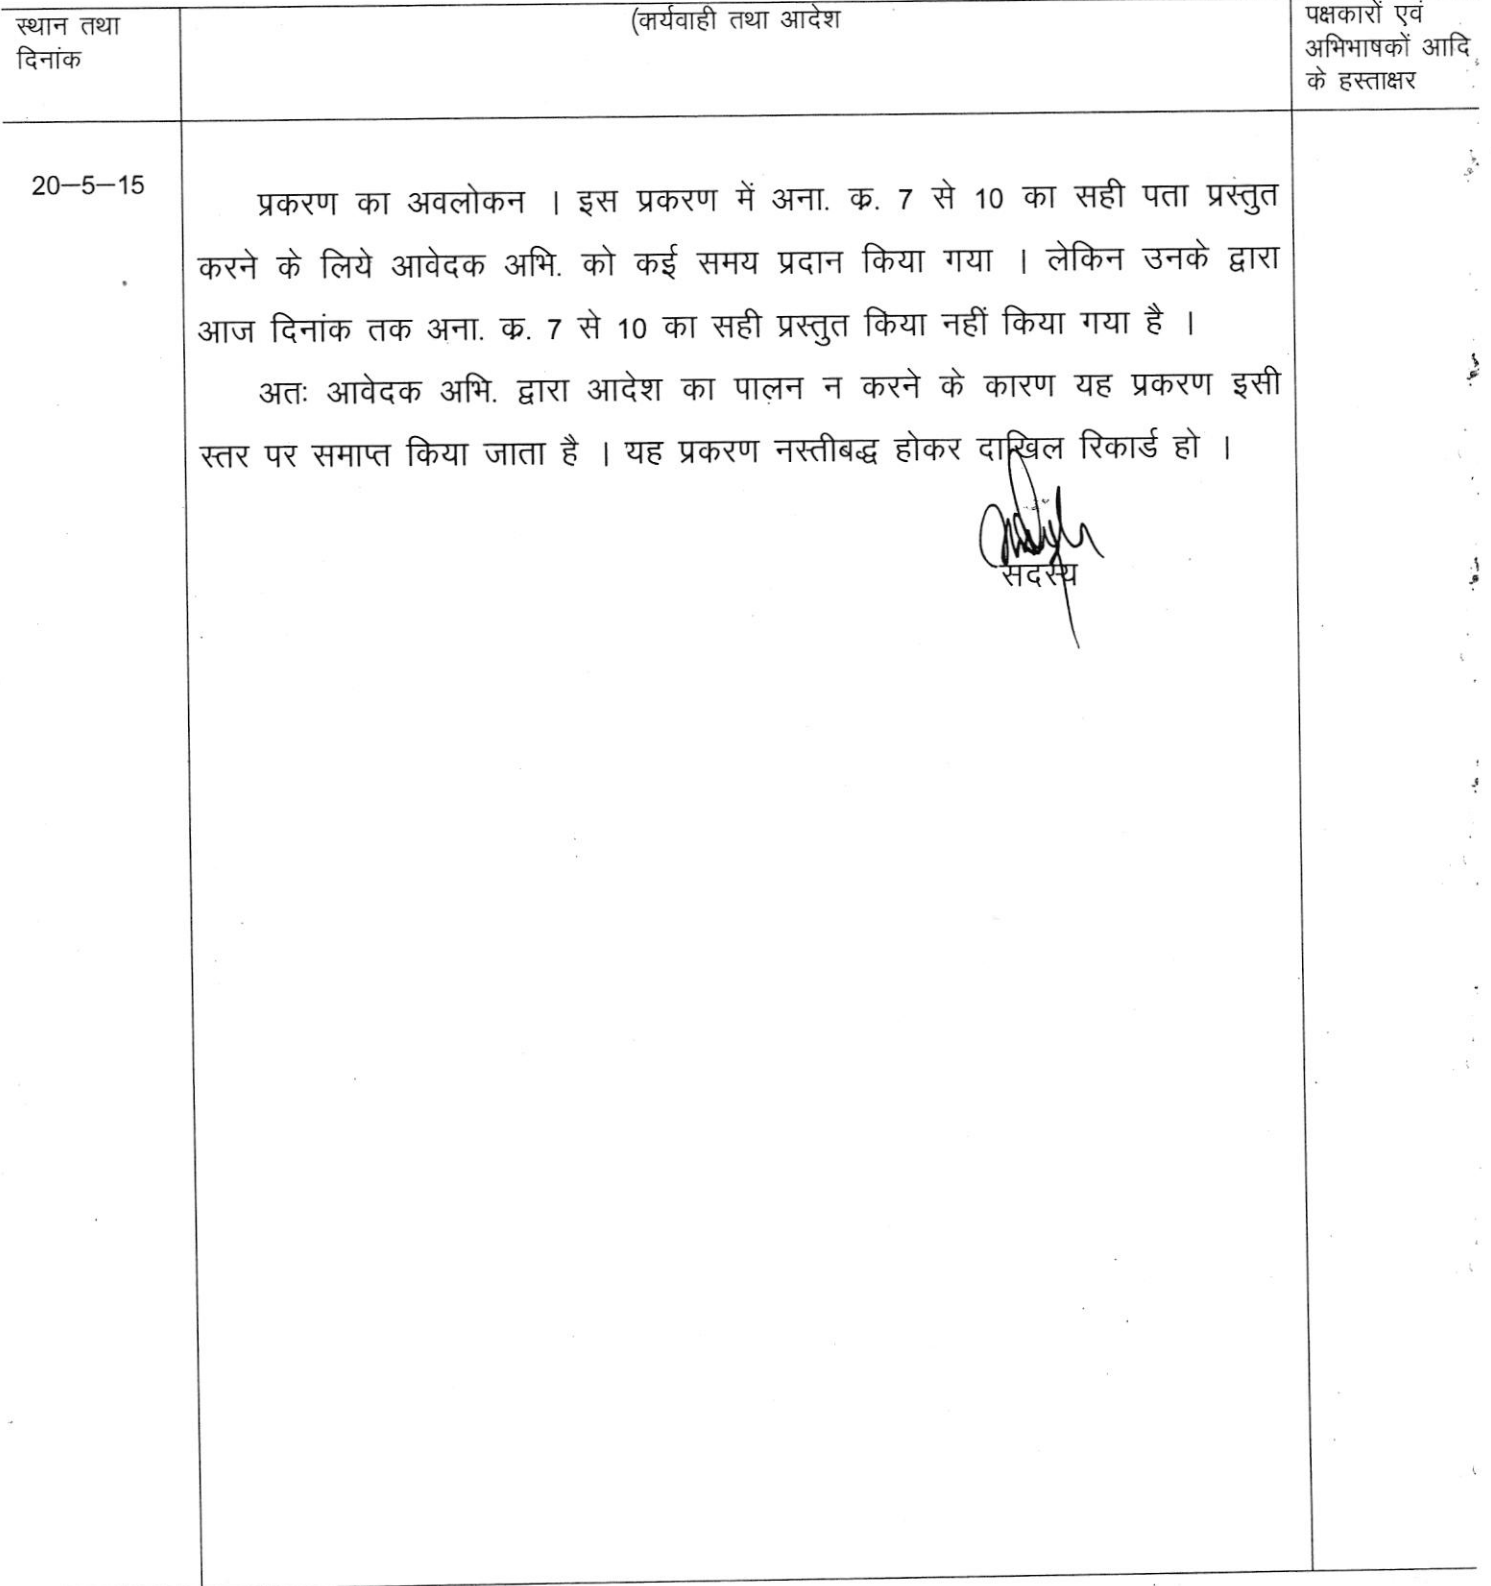 स्थान तथा
दिनांक
(कार्यवाही तथा आदेश
पक्षकारों एवं
अभिभाषकों आदि
के हस्ताक्षर
20–5–15
प्रकरण का अवलोकन । इस प्रकरण में अना. क्र. 7 से 10 का सही पता प्रस्तुत
करने के लिये आवेदक अभि. को कई समय प्रदान किया गया । लेकिन उनके द्वारा
आज दिनांक तक अना. क्र. 7 से 10 का सही प्रस्तुत किया नहीं किया गया है ।
अतः आवेदक अभि. द्वारा आदेश का पालन न करने के कारण यह प्रकरण इसी
स्तर पर समाप्त किया जाता है । यह प्रकरण नस्तीबद्ध होकर दाखिल रिकार्ड हो ।
सदस्य